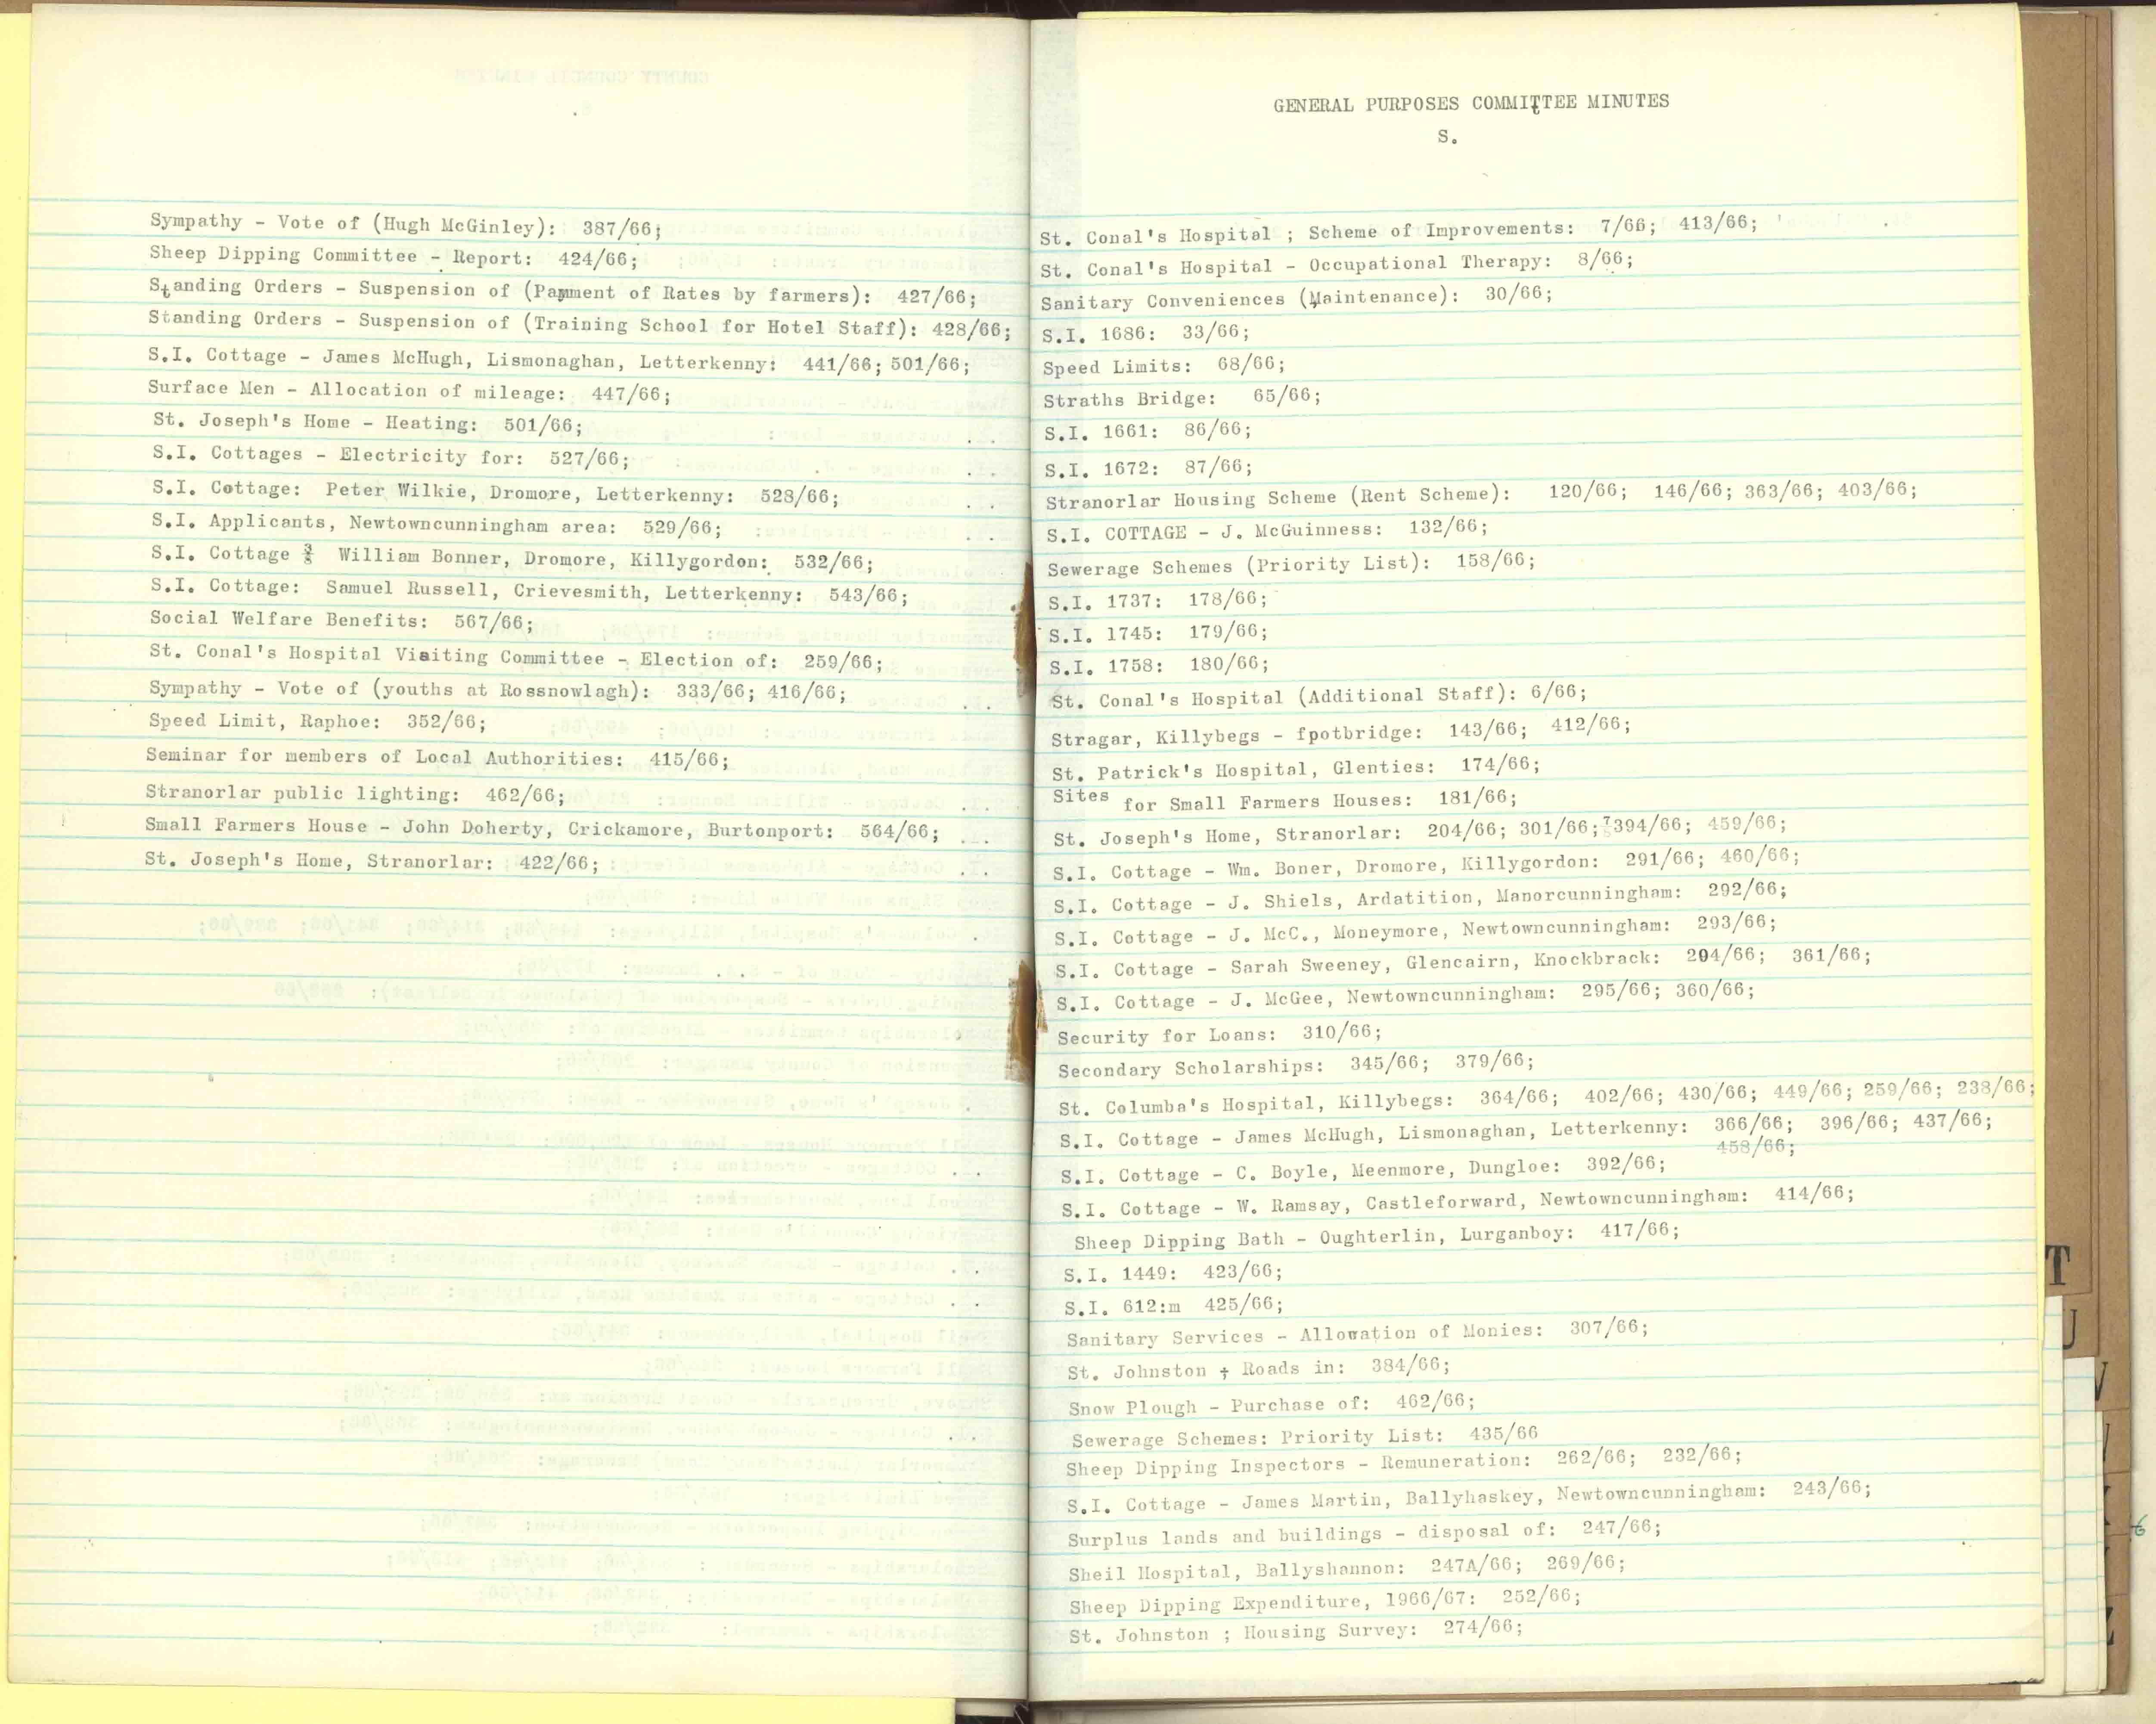 Sympathy - Vote of (Hugh McGinley): 387/66;
Sheep Dipping Committee - Report: 424/66;
Standing Orders - Suspension of (Payment of Rates by farmers): 427/66;
Standing Orders - Suspension of (Training School for Hotel Staff): 428/66;
S.I. Cottage - James McHugh, Lismonaghan, Letterkenny: 441/66; 501/66;
Surface Men - Allocation of mileage: 447/66;
St. Joseph's Home - Heating: 501/66;
S.I. Cottages - Electricity for: 527/66;
S.I. Cottage: Peter Wilkie, Dromore, Letterkenny: 528/66;
S.I. Applicants, Newtowncunningham area: 529/66;
S.I. Cottage William Bonner, Dromore, Killygordon: 532/66;
S.I. Cottage: Samuel Russell, Crievesmith, Letterkenny: 543/66;
Social Welfare Benefits: 567/66;
St. Conal's Hospital Visiting Committee - Election of: 259/66;
Sympathy - Vote of (youths at Rossnowlagh): 333/66; 416/66;
Speed Limit, Raphoe: 352/66;
Seminar for members of Local Authorities: 415/66;
Stranorlar public lighting: 462/66;
Small Farmers House - John Doherty, Crickamore, Burtonport: 564/66;
St. Joseph's Home, Stranorlar: 422/66;
GENERAL PURPOSES COMMITTEE MINUTES
S.
St. Conal's Hospital ; Scheme of Improvements: 7/66; 413/66;
St. Conal's Hospital - Occupational Therapy: 8/66;
Sanitary Conveniences (Maintenance): 30/66;
S.I. 1686: 33/66;
Speed Limits: 68/66;
Straths Bridge: 65/66;
S.I. 1661: 86/66;
S.I. 1672: 87/66;
Stranorlar Housing Scheme (Rent Scheme): 120/66; 146/66; 363/66; 403/66;
S.I. COTTAGE - J. McGuinness: 132/66;
Sewerage Schemes (Priority List): 158/66;
S.I. 1737: 178/66;
S.I. 1745: 179/66;
S.I. 1758: 180/66;
St. Conal's Hospital (Additional Staff): 6/66;
Stragar, Killybegs - fpotbridge: 143/66; 412/66;
St. Patrick's Hospital, Glenties: 174/66;
Sites for Small Farmers Houses: 181/66;
St. Joseph's Home, Stranorlar: 204/66; 301/66; 394/66; 459/66;
S.I. Cottage - Wm. Boner, Dromore, Killygordon: 291/66; 460/66;
S.I. Cottage - J. Shiels, Ardatition, Manorcunningham: 292/66;
S.I. Cottage - J. McC., Moneymore, Newtowncunningham: 293/66;
S.I. Cottage - Sarah Sweeney, Glencairn, Knockbrack: 294/66; 361/66;
S.I. Cottage - J. McGee, Newtowncunningham: 295/66; 360/66;
Security for Loans: 310/66;
Secondary Scholarships: 345/66; 379/66;
St. Columba's Hospital, Killybegs: 364/66; 402/66; 430/66; 449/66; 259/66; 238/66;
S.I. Cottage - James McHugh, Lismonaghan, Letterkenny: 366/66; 396/66; 437/66;
458/66;
S.I. Cottage - C. Boyle, Meenmore, Dungloe: 392/66;
S.I. Cottage - W. Ramsay, Castleforward, Newtowncunningham: 414/66;
Sheep Dipping Bath - Oughterlin, Lurganboy: 417/66;
S.I. 1449: 423/66;
S.I. 612:m 425/66;
Sanitary Services - Allowation of Monies: 307/66;
St. Johnston ÷ Roads in: 384/66;
Snow Plough - Purchase of: 462/66;
Sewerage Schemes: Priority List: 435/66
Sheep Dipping Inspectors - Remuneration: 262/66; 232/66;
S.I. Cottage - James Martin, Ballyhaskey, Newtowncunningham: 243/66;
Surplus lands and buildings - disposal of: 247/66;
Sheil Hospital, Ballyshannon: 247A/66; 269/66;
Sheep Dipping Expenditure, 1966/67: 252/66;
St. Johnston ; Housing Survey: 274/66;
T
U